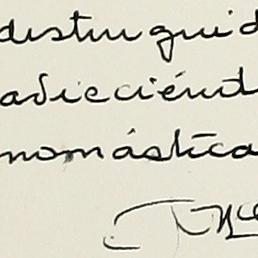 distinguid
adieciént
nomástica